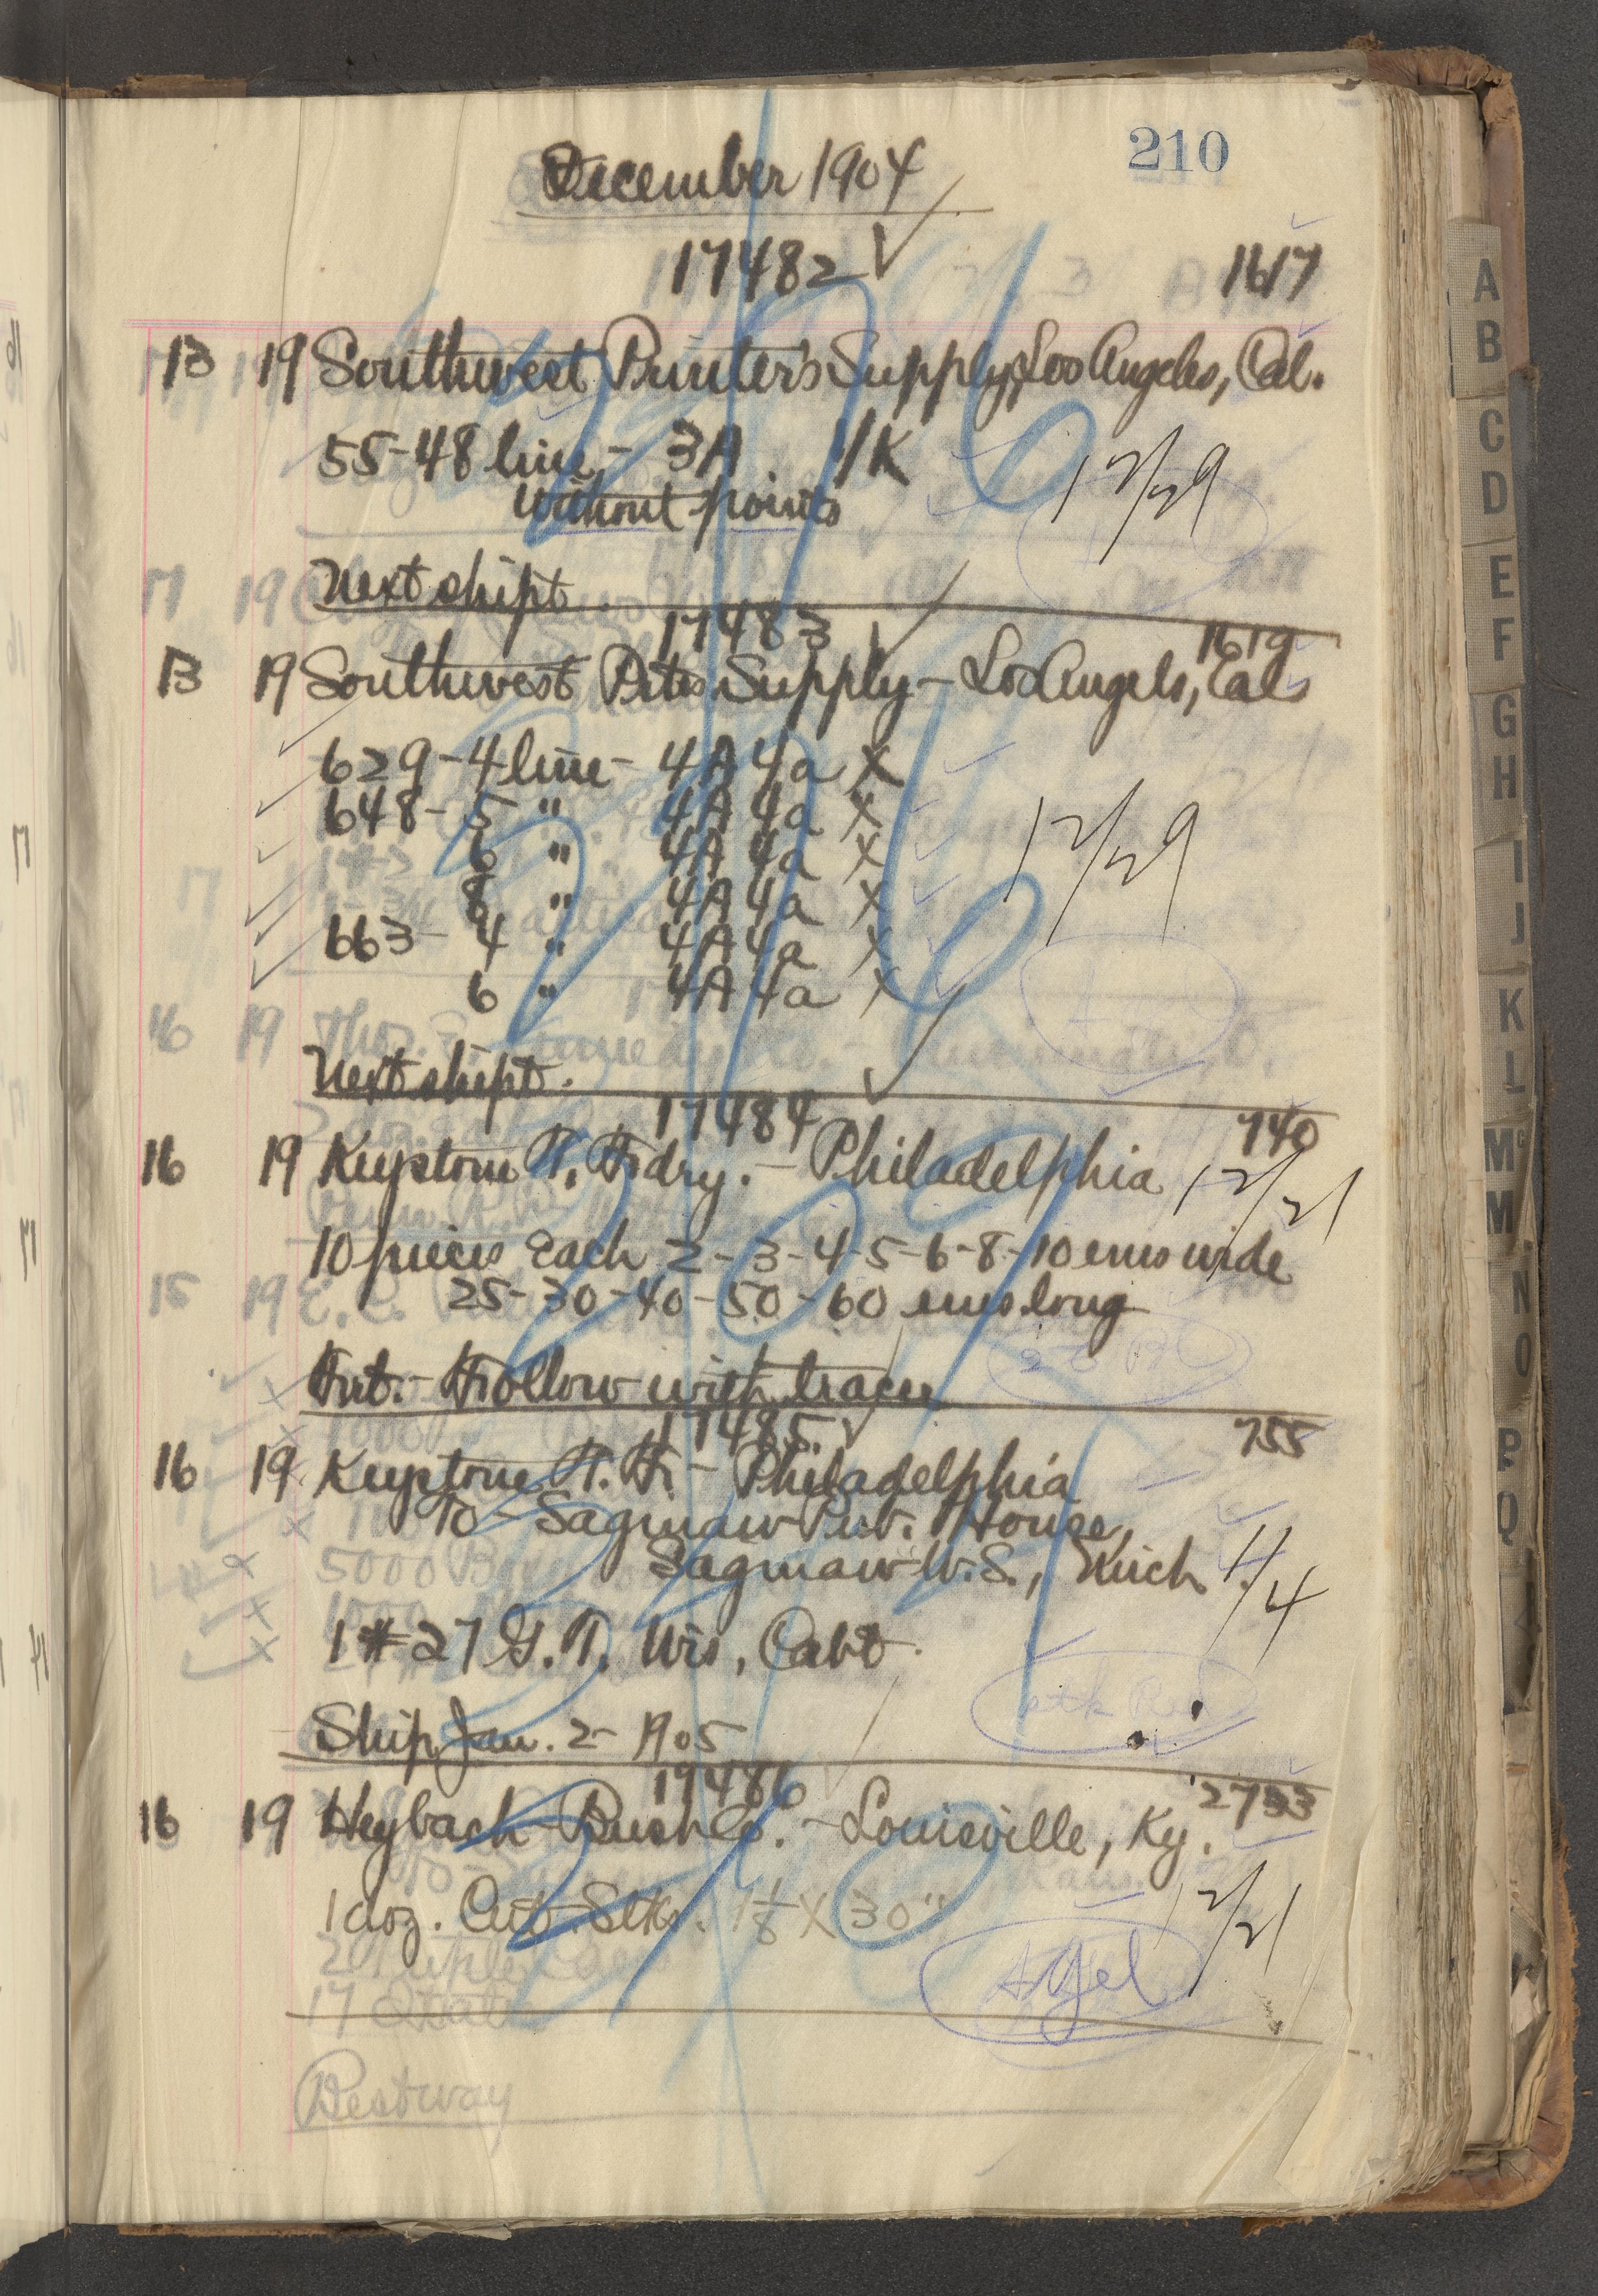 210
December 1904
17482 1617
13 19 Southwest Printers Supply, Los Angeles, Cal.
55-48 line - 3A 1/K
without points
12/29
Next shipt.
17483 1619
13 19 Southwest Ptrs Supply - Los Angels, Cal
629-4 line - 4A 4a X
648-5 " 4A 4a X
6 " 4A 4a X
12/29
8 " 4A 4a X
663- 4 " 4A 4a X
6 " 4A 4a X
Next shipt.
17484 740
16 19 Keystone T. Fdry. - Philadelphia 12/21
10 pieces Each 2-3-4-5-6-8-10 ems wide
25-30-40-50-60 ems long
Frt. - Follow with tracer
17485 755
16 19 Keystone T. F. - Philadelphia
To - Saginaw Pub. House,
Saginaw W.S., Mich
1/4
1 #27 G.T. Wis, Cabt.
stk
Ship Jan. 2- 1905
17486 2733
16 19 Heybach-Bush Co. - Louisville, Ky.
1 doz. Cut. Stks. 1 1/8 X 30"
12/21
Bestway
A
B
C
D
E
F
G
H
I
J
K
L
Mc
M
N
O
P
Q